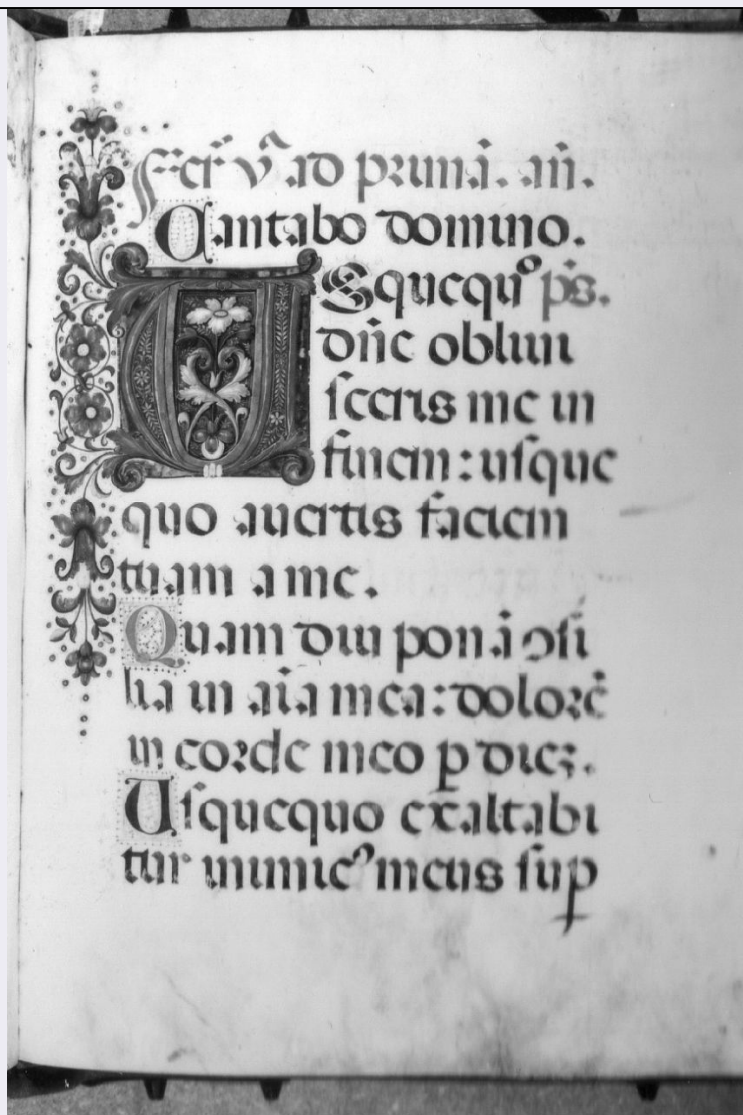 Fer̃ vͣ ad primã. añ.
Cantabo domino.
USquequͦ p̃s.
dñe obliui
ſceris me in
finem: uſque
quo auertis faciem
tuam a me.
Quam diu ponã ↄſi
lia in aĩa mea: dolorẽ
in corde meo p dieꝫ.
Uſquequo exaltabi
tur inimicꝰ meus ſuꝑ